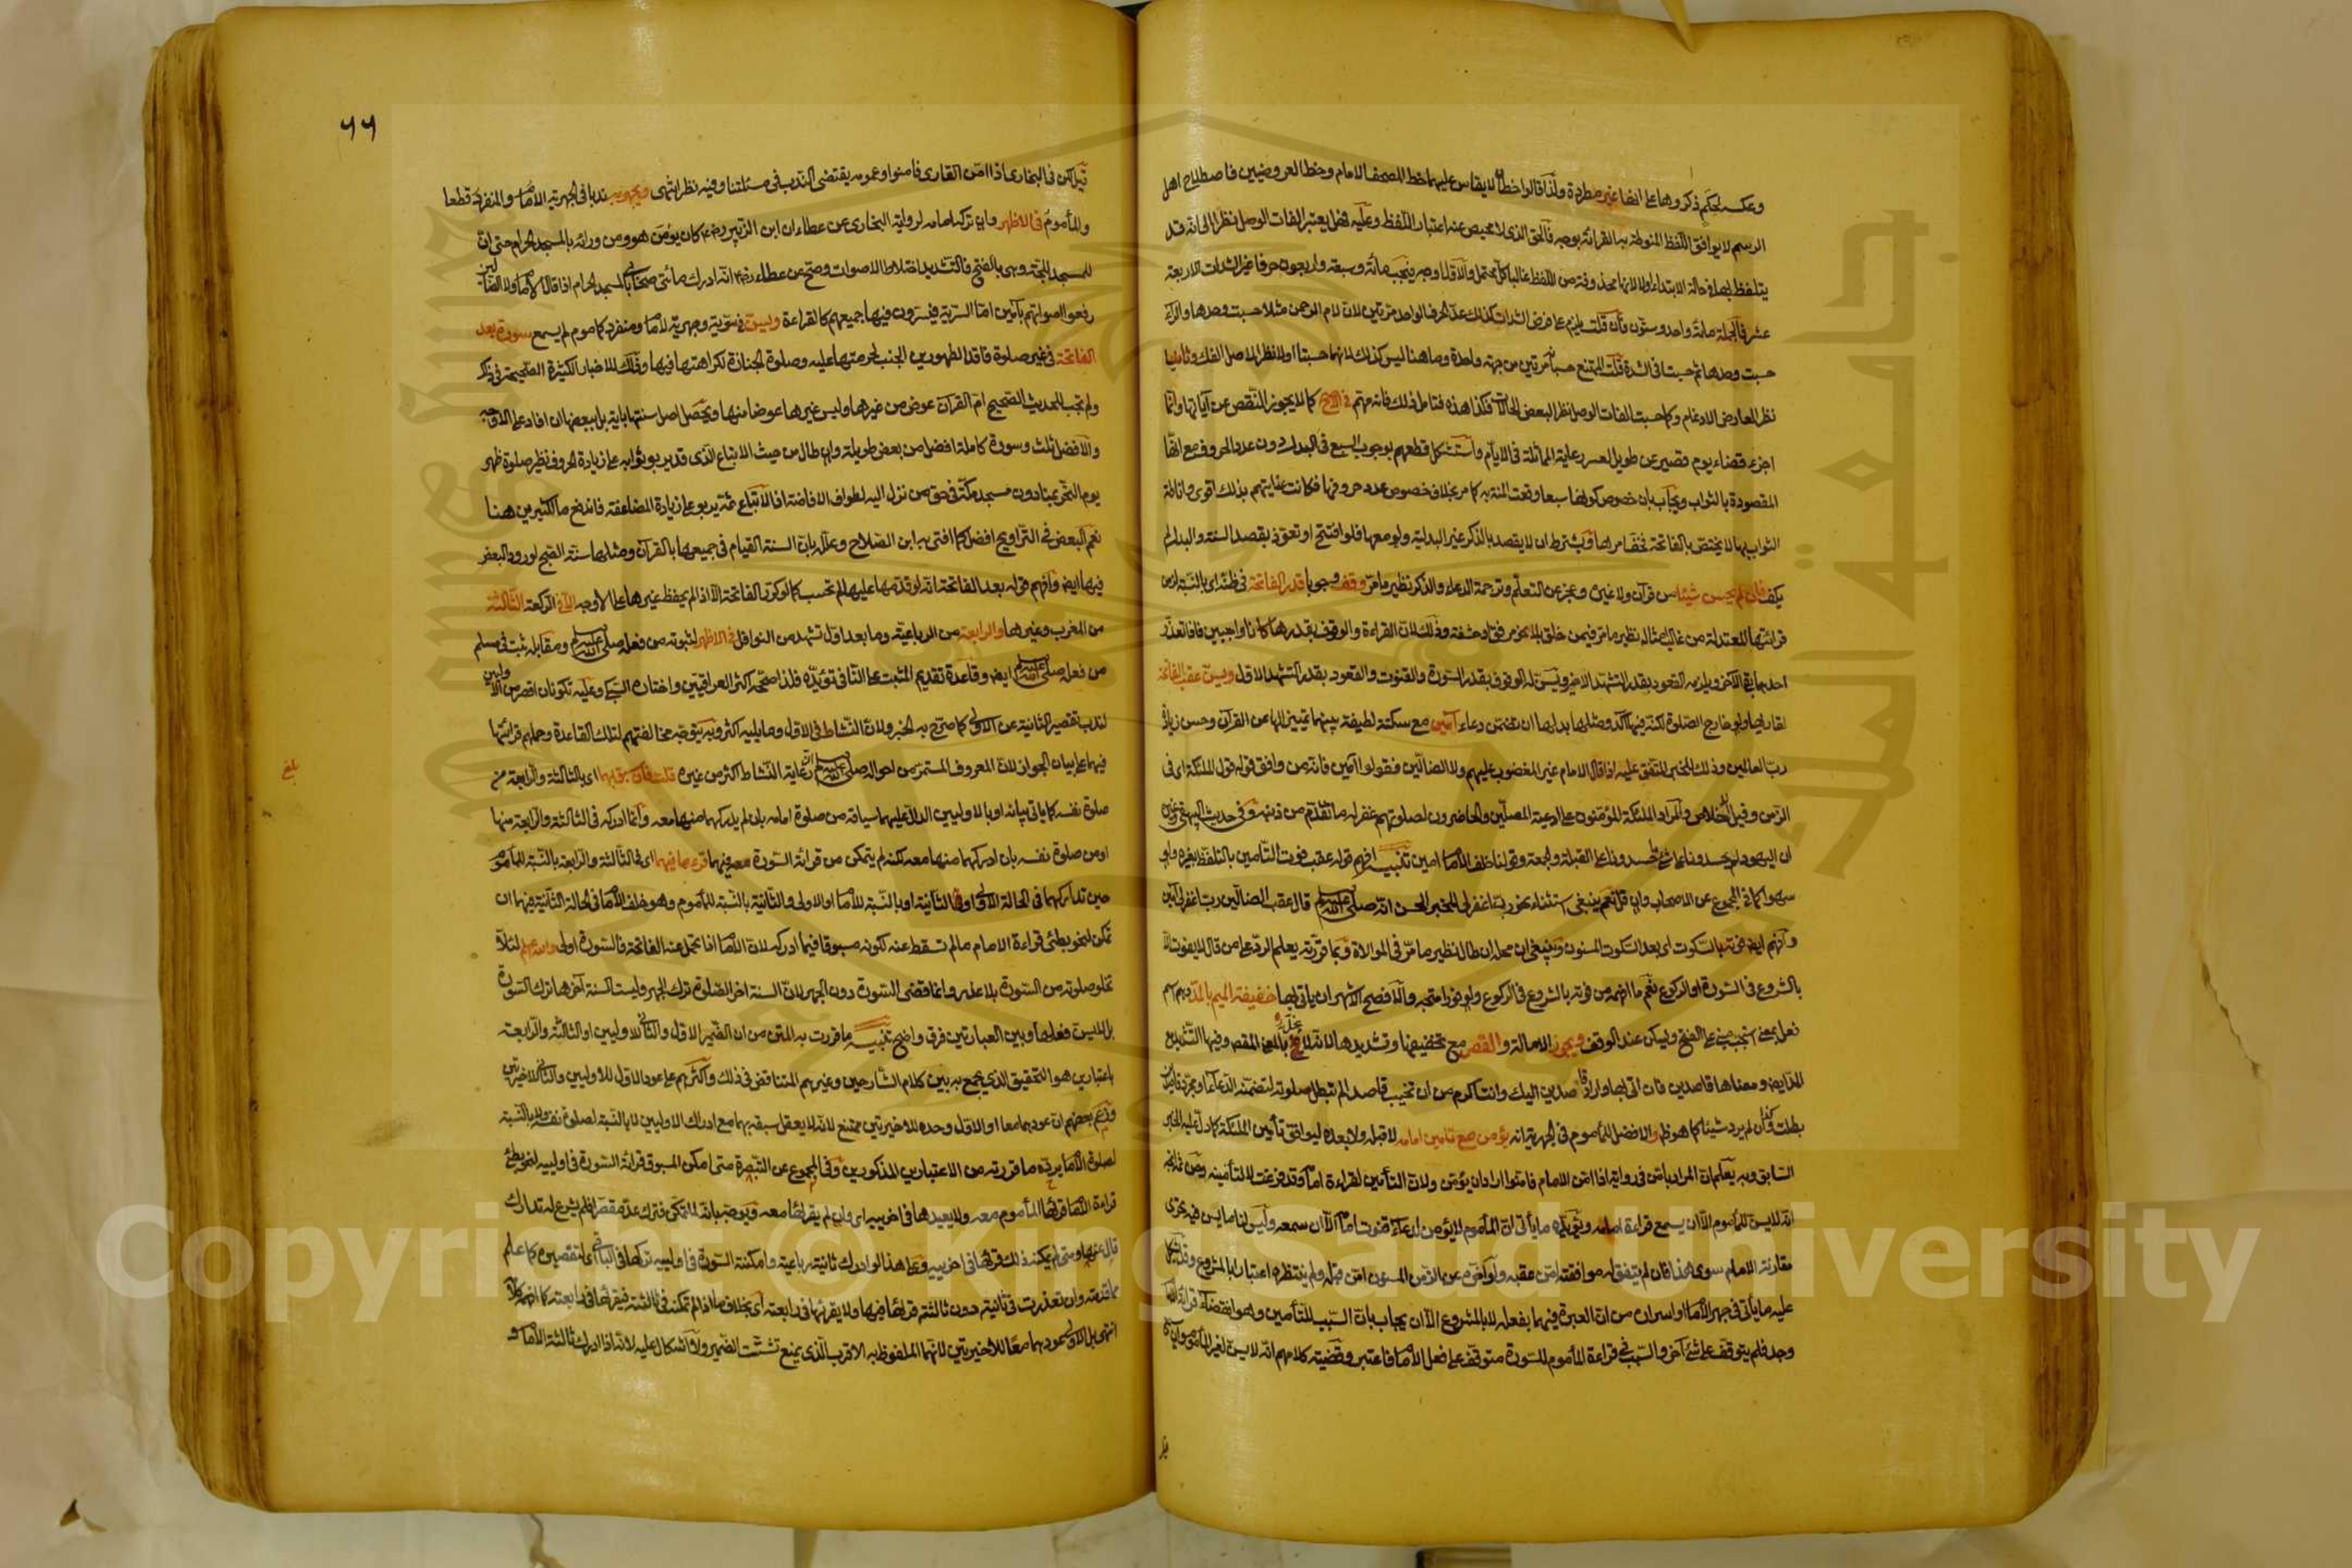 وعكسه لحكم ذكروهما على انها غير مطردة ولذا قالوا خطان لا يقاس عليهما خط المصحف الامام وخط العروضيين فاصطلاح اهل
الرسم لا يوافق اللفظ المنوطة به القرائة بوجه فالحق الذى لا محيص عنه اعتبار اللفظ وعليه فهل يعتبر الفات الوصل نظرا الى انه قد
يتلفظ بها فى حالة الابتداء اولا لانها محذوفة من اللفظ غالبا كل محتمل والاول اوجه فيجب مائة وسبعة واربعون حرفا غير الشدات الاربعة
عشر فالجملة مائة واحد وستون فان قلت يلزم على فرض الشدات كذلك عد الحرف الواحد مرتين لان لام الرحمن مثلا حسبت وحدها والراء
حسبت وحدها ثم حسبتا فى الشدة قلت الممتنع حسبانه مرتين من جهة واحدة وما هنا ليس كذلك لانهما حسبتا اولا نظرا لاصل الفك وثانيا
نظرا لعارض الادغام وكما حسبت الفات الوصل نظرا لبعض الحالات فكذا هذه فتامل ذلك فانه مهم فى الاصح كما لا يجوز النقص عن آياتها وانما
اجزء قضاء يوم قصير عن طويل لعسر رعاية المماثلة فى الايام واستشكل قطعهم بوجوب السبع فى البدل دون عدد الحروف مع انها
المقصودة بالثواب ويجاب بان خصوص كونها سبعا وقعت المنة به كما مر بخلاف خصوص عدد حروفها فكانت عنايتهم بذلك اقوى واناطة
الثواب بها لا يختص بالفاتحة فخف امرها ويشترط ان لا يقصد بالذكر غير البدلية ولو معها فلو افتتح او تعوذ بقصد السنة والبدل لم
يكف فان لم يحسن شيئا من قرآن ولا غيره وعجز عن التعلم وترجمة الدعاء والذكر نظير ما مر وقف وجوبا قدر الفاتحة فى ظنه اى بالنسبة لزمن
قرائتها المعتدلة من غالب امثاله نظير ما مر فيمن خلق بلا نحو مرفق او حشفة وذلك لان القراءة والوقوف بقدرها كانا واجبين فاذا تعذر
احدهما بقى الآخر ويلزمه القعود بقدر التشهد الاخير ويسن له الوقوف بقدر السورة والقنوت والقعود بقدر التشهد الاول ويسن عقب الفاتحة
لقاريها ولو خارج الصلوة لكنه فيها آكد ومثلها بدلها ان تضمن دعاء آمين مع سكتة لطيفة بينهما تمييزا لها عن القرآن وحسن زيادة
رب العالمين وذلك للخبر المتفق عليه اذا قال الامام غير المغضوب عليهم ولا الضالين فقولوا آمين فانه من وافق قوله قول الملئكة اى فى
الزمن وقيل الاخلاص والمراد الملئكة المؤمنون على ادعية المصلين والحاضرون لصلوتهم غفر له ما تقدم من ذنبه وفى حديث البيهقى وغيره
ان اليهود لم يحسدونا على شئ ما حسدونا على القبلة والجمعة وقولنا خلف الامام امين تنبيه افهم قوله عقب فوت التامين بالتلفظ بغيره ولو
سهوا كما فى المجموع عن الاصحاب وان قل نعم ينبغى استثناء نحو رب اغفر لى للخبر الحسن انه صلى الله عليه وسلم قال عقب الضالين رب اغفر لى آمين
وافهم ايضا فوته بالسكوت اى بعد السكوت المسنون وينبغى ان محله ان طال نظير ما مر فى الموالاة وبما قررته يعلم الرد على من قال لا يفوت الا
بالشروع فى السورة او الركوع نعم ما افهمه من فوته بالشروع فى الركوع ولو فورا متجه والافصح الاشهر ان ياتى بها خفيفة الميم بالمد وهو اسم
فعل بمعنى استجب مبنى على الفتح ويسكن عند الوقف ويجوز الامالة والقصر مع تخفيفها وتشديدها لانه لا يخل بالمعنى المقصود وفيها التشديد مع
المد ايضا ومعناها قاصدين فان اتى بها واراد قاصدين اليك وانت اكرم من ان تخيب قاصدا لم تبطل صلوته لتضمنه الدعاء او مجرد قاصدين
بطلت وكذا ان لم يرد شيئا كما هو ظاهر والافضل للمأموم فى الجهرية انه يؤمن مع تامين امامه لا قبله ولا بعده ليوافق تأمين الملئكة كما دل عليه الخبر
السابق وبه يعلم ان المراد بامن فى رواية اذا امن الامام فامنوا اراد ان يؤمن ولان التأمين لقراءة امامه وقد فرغت لا لتأمينه ومن ثم اتجه
انه لا يسن للمأموم الا ان يسمع قراءة امامه ويؤيده ما يأتى ان المأموم لا يؤمن لدعاء قنوت امامه الا ان سمعه وليس لنا ما يسن فيه تحرى
مقارنة الامام سوى هذا فان لم يتفق له موافقته امن عقبه ولو اخره عن الزمن المسنون امن قبله ولم ينتظره اعتبارا بالمشروع
عليه ما يأتى فى جهر الامام او اسراره من ان العبرة فيهما بفعله لا بالمشروع الا ان يجاب بان السبب للتأمين وهو انقضاء قراءة الامام
وجد فلم يتوقف على شئ آخر والسبب فى قراءة المأموم للسورة متوقف على فعل الامام فاعتبر وقضية كلامهم انه لا يسن لغير المأموم
٦٦
قيل لكن فى البخارى اذا امن القارى فامنوا وعمومه يقتضى الندب فى مسئلتنا وفيه نظر انتهى ويجهر به ندبا فى الجهرية الامام والمنفرد قطعا
والمأموم فى الاظهر وان تركه امامه لرواية البخارى عن عطاء ان ابن الزبير رضى الله عنهما كان يؤمن هو ومن ورائه بالمسجد الحرام حتى ان
للمسجد للجة وهى بالفتح فالتشديد اختلاط الاصوات وصح عن عطاء رضى الله عنه انه ادرك مائتى صحابى بالمسجد الحرام اذا قال الامام ولا الضالين
رفعوا اصواتهم بآمين اما السرية فيسرون فيها جميعهم كالقراءة ويسن فى سرية وجهرية لامام ومنفرد كمأموم لم يسمع سورة بعد
الفاتحة فى غير صلوة فاقد الطهورين الجنب لحرمتها عليه وصلوة الجنازة لكراهتها فيها وذلك للاخبار الكثيرة الصحيحة فى ذلك
ولم تجب للحديث الصحيح ام القرآن عوض من غيرها وليس غيرها عوضا منها ويحصل اصل سنتها باية بل ببعضها ان افاد على الاوجه
والافضل ثلث وسورة كاملة افضل من بعض طويلة وان طال من حيث الاتباع الذى قد يربو ثوابه على زيادة الحروف نظير صلوة ظهر
يوم النحر بمنا دون مسجد مكة فى حق من نزل اليه لطواف الافاضة اذ الاتباع ثمة يربو على زيادة المضاعفة فاندفع ما لكثيرين هنا
نعم البعض فى التراويح افضل كما افتى به ابن الصلاح وعلله بان السنة القيام فى جميعها بالقرآن ومثلها سنة الصبح لورود البعض
فيها ايضا وافهم قوله بعد الفاتحة انه لو قدمها عليها لم تحسب كما لو كرر الفاتحة الا اذا لم يحفظ غيرها على الاوجه الا فى الركعة الثالثة
من المغرب وغيرها والرابعة من الرباعية وما بعد اول تشهد من النوافل فى الاظهر لثبوته من فعله صلى الله عليه وسلم ومقابله ثبت فى مسلم
من فعله صلى الله عليه وسلم ايضا وقاعدة تقديم المثبت على النافى تؤيده فلذا صححه اكثر العراقيين واختاره السبكى وعليه تكونان اقصر من الاوليين
لندب تقصير الثانية عن الاولى كما صرح به الخبر ولان النشاط فى الاول وما يليه اكثر وبه يتوجه مخالفتهم لتلك القاعدة وحملهم قرائتها
فيهما على بيان الجواز لان المعروف المستمر من احواله صلى الله عليه وسلم رعاية ان النشاط اكثر من غيره قلت فان سبق بهما اى بالثالثة والرابعة من
بلغ
صلوة نفسه كما ياتى بيانه او بالاوليين الدال عليهما سياقه من صلوة امامه بان لم يدركهما منها معه وانما ادركه فى الثالثة والرابعة منها
او من صلوة نفسه بان ادركهما منها معه لكنه لم يتمكن من قرائة السورة معه فيهما قرءها فيهما اى فى الثالثة والرابعة بالنسبة للمأموم
حين تداركهما فى الحالة الاولى او فى الثانية او بالنسبة للامام او الاولى والثانية بالنسبة للمأموم وهو خلف الامام فى الحالة الثانية فيهما ان
تمكن لنحو بطئ قراءة الامام ما لم تسقط عنه لكونه مسبوقا فيما ادركه لان الامام اذا تحمل عنه الفاتحة فالسورة اولى والله اعلم لئلا
تخلو صلوته من السورة بلا عذر وانما قضى السورة دون الجهر لان السنة اخر الصلوة ترك الجهر وليست السنة آخرها ترك السورة
بل لا يسن فعلها وبين العبارتين فرق واضح تنبيه ما قررت به المتن من ان الضمير الاول والثانى للاوليين او الثالثة والرابعة
باعتبارين هو التحقيق الذى يجمع به بين كلام الشارحين وغيرهم المتناقض فى ذلك واكثرهم على عود الاول للاوليين والثانى للاخيرتين
وزعم بعضهم ان عودهما معا او الاول وحده للاخيرتين ممتنع لانه لا يعقل سبقه بهما مع ادراك الاوليين لا بالنسبة لصلوة نفسه ولا بالنسبة
لصلوة الامام يرده ما قررته من الاعتبارين المذكورين وفى المجموع عن التبصرة متى امكن المسبوق قرائة السورة فى اولييه لنحو بطئ
قراءة الامام قرأها المأموم معه ولا يعيدها فى اخرييه اى وان لم يقرأها معه ويوجه بانه لما تمكن فترك عد مقصرا فلم يشرع له تدارك
قال عنها ومتى لم يمكنه ذلك قرأها فى اخرييه وعلى هذا لو ادرك ثانية رباعية وامكنته السورة فى اولييه تركها فى الباقى اى لتقصيره كما علم
مما قدمته وان تعذرت فى ثانيته دون ثالثته قرأها فيها ولا يقرئها فى رابعته اى بخلاف ما اذا لم تمكنه فى ثالثته فيقرأها فى رابعته كما افهمه كلامه
انتهى بل الاولى عودهما معا للاخيرتين لانهما الملفوظ به الاقرب الذى يمنع تشتت الضمير ولا اشكال عليه لانه اذا ادرك ثالثة الامام و
Copyright © King Saud University